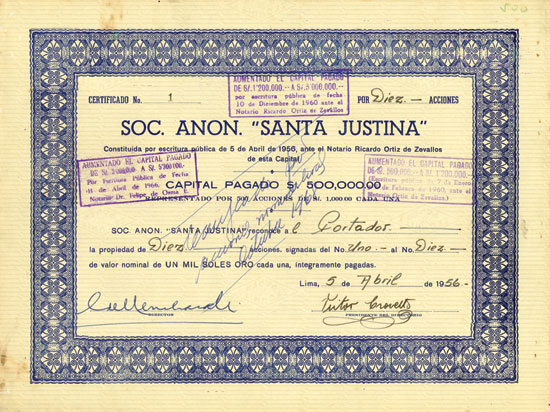 AUMENTADO EL CAPITAL PAGADO
DE S/. 1'200,000.— A S/. 5'000,000.—
por escritura pública de fecha
10 de Diciembre de 1960 ante el
Notario Ricardo Ortiz de Zevallos
CERTIFICADO No. 1 POR Diez.— ACCIONES
SOC. ANON. "SANTA JUSTINA"
Constituída por escritura pública de 5 de Abril de 1956, ante el Notario Ricardo Ortiz de Zevallos
de esta Capital
AUMENTADO EL CAPITAL PAGADO
Por Escritura Pública de Fecha
de Abril de 1966.
Notario: Dr. Felipe de Osma
DE S/. 500,000.—
de Febrero de 1960, ante
de Zevallos)
CAPITAL PAGADO S/. 500,000.00
REPRESENTADO POR 500 ACCIONES DE S/. 1,000.00 CADA UNA
acciones nominativas
SOC. ANON. "SANTA JUSTINA" reconoce a el Portador.—
la propiedad de Diez acciones, signadas del No. Uno.— al No. Diez.—
de valor nominal de UN MIL SOLES ORO cada una, íntegramente pagadas.
Lima, 5 de Abril de 1956.—
DIRECTOR
Victor Crovetto
PRESIDENTE DEL DIRECTORIO